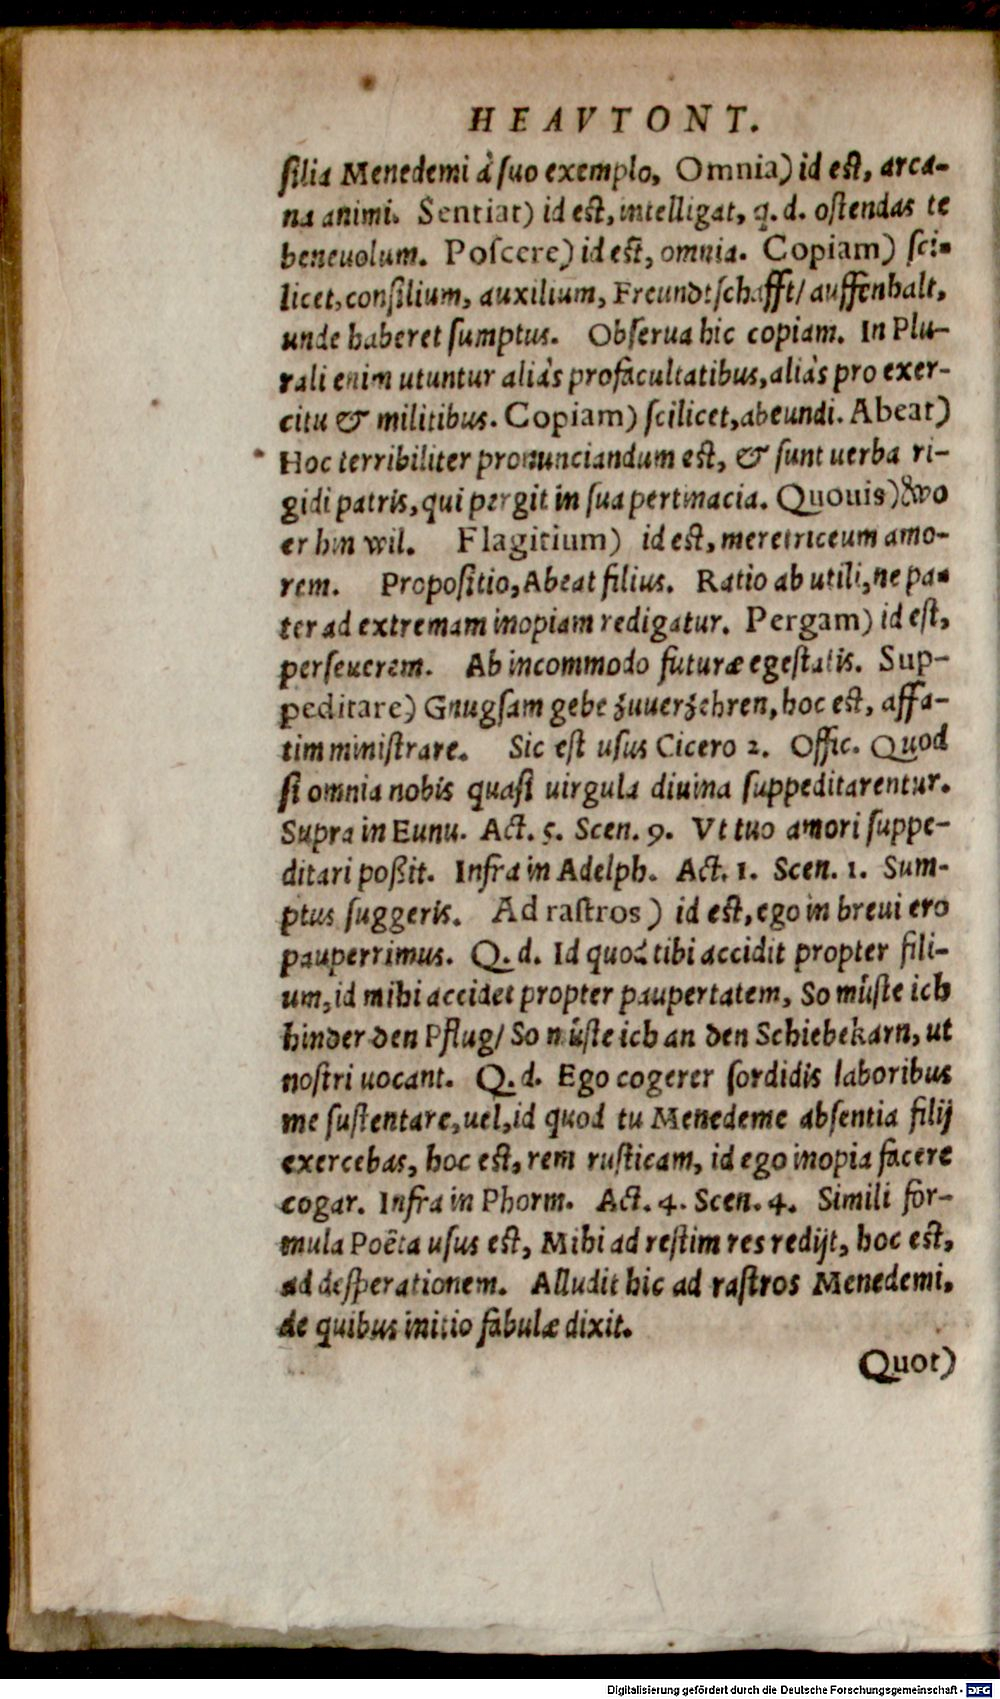 HEAVTONT.
silia Menedemi à suo exemplo, Omnia) id est, arca-
na animi. Sentiat) id est, intelligat, q.d. ostendas te
beneuolum. Poscere) id est, omnia. Copiam) sci-
licet, consilium, auxilium, Freundtschafft/ auffenhalt,
unde haberet sumptus. Obserua hic copiam. In Plu-
rali enim utuntur aliàs pro facultatibus, aliàs pro exer-
citu & militibus. Copiam) scilicet, abeundi. Abeat)
Hoc terribiliter pronunciandum est, & sunt uerba ri-
gidi patris, qui pergit in sua pertinacia. Quouis) Wo
er hin wil. Flagitium) id est, meretriceum amo-
rem. Propositio, Abeat filius. Ratio ab utili, ne pa-
ter ad extremam inopiam redigatur. Pergam) id est,
perseuerem. Ab incommodo futuræ egestatis. Sup-
peditare) Gnugsam gebe zuuerzehren, hoc est, affa-
tim ministrare. Sic est usus Cicero 2. Offic. Quod
si omnia nobis quasi uirgula diuina suppeditarentur.
Supra in Eunu. Act. 5. Scen. 9. Vt tuo amori suppe-
ditari poßit. Infra in Adelph. Act. 1. Scen. 1. Sum-
ptus suggeris. Ad rastros) id est, ego in breui ero
pauperrimus. Q.d. Id quod tibi accidit propter fili-
um, id mihi accidet propter paupertatem, So müste ich
hinder den Pflug/ So müste ich an den Schiebekarn, ut
nostri uocant. Q.d. Ego cogerer sordidis laboribus
me sustentare, uel, id quod tu Menedeme absentia filij
exercebas, hoc est, rem rusticam, id ego inopia facere
cogar. Infra in Phorm. Act. 4. Scen. 4. Simili for-
mula Poëta usus est, Mihi ad restim res redijt, hoc est,
ad desperationem. Alludit hic ad rastros Menedemi,
de quibus initio fabulæ dixit.
Quot)
Digitalisierung gefördert durch die Deutsche Forschungsgemeinschaft - DFG